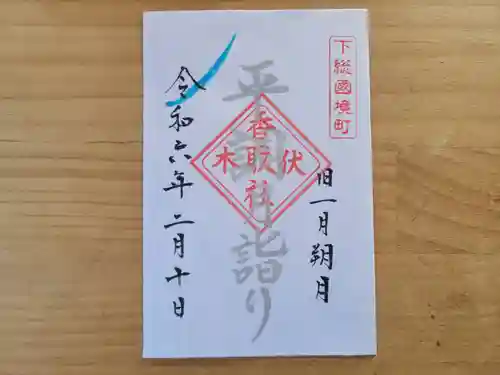 下総國境町
旧一月朔月
平
詣り
香取社
伏木
令和六年二月十日